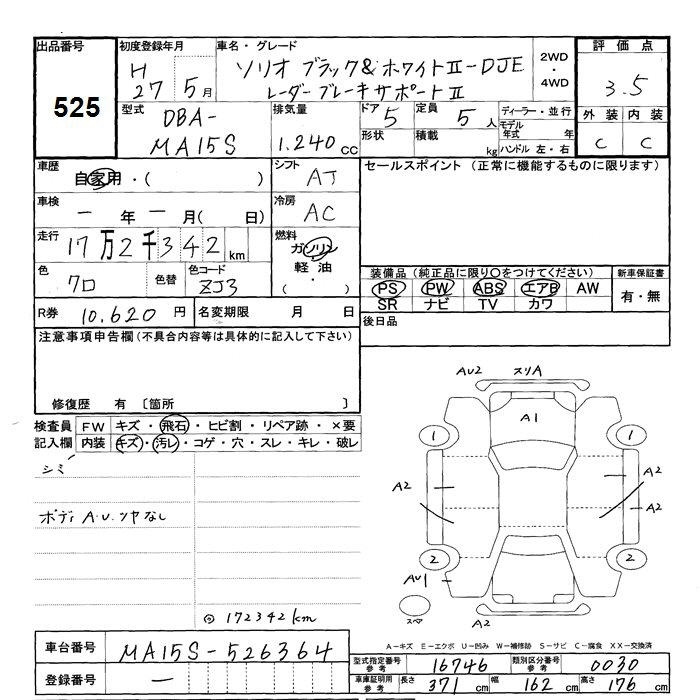 出品番号 初度登録年月 車名・グレード 2WD・4WD 評価点
525 H27 5月 ソリオ ブラック&ホワイトⅡ-DJE 3.5
レーダーブレーキサポートⅡ
型式 DBA-MA15S 排気量 1.240cc ドア 5 定員 5人 ディーラー・並行 外装 内装
形状 積載 kg モデル年式 年 ハンドル 左・右 C C
車歴 自家用・( ) シフト AT セールスポイント (正常に機能するものに限ります)
車検 一年一月( 日) 冷房 AC
走行 17万2千342km 燃料 ガソリン・軽油・( )
色 クロ 色替 色コード ZJ3 装備品 (純正品に限り○をつけてください) 新車保証書
PS PW ABS エアB AW 有・無
SR ナビ TV カワ
R券 10.620円 名変期限 月 日 後日品
注意事項申告欄(不具合内容等は具体的に記入して下さい)
修復歴 有 〔箇所 〕
検査員記入欄 FW キズ・飛石・ヒビ割・リペア跡・×要
内装 キズ・汚レ・コゲ・穴・スレ・キレ・破レ
シミ
ボディ A.U.ツヤなし
◎ 172342km
AU2 スリA
A1
1 1
A2 A2
A2
2 2
AU1
スペア A2
A-キズ E-エクボ U-凹み W-補修跡 S-サビ C-腐食 XX-交換済
車台番号 MA15S-526364
登録番号 一
型式指定番号 参考 16746 類別区分番号 参考 0030
車庫証明用 参考 長さ 371cm 幅 162cm 高さ 176cm